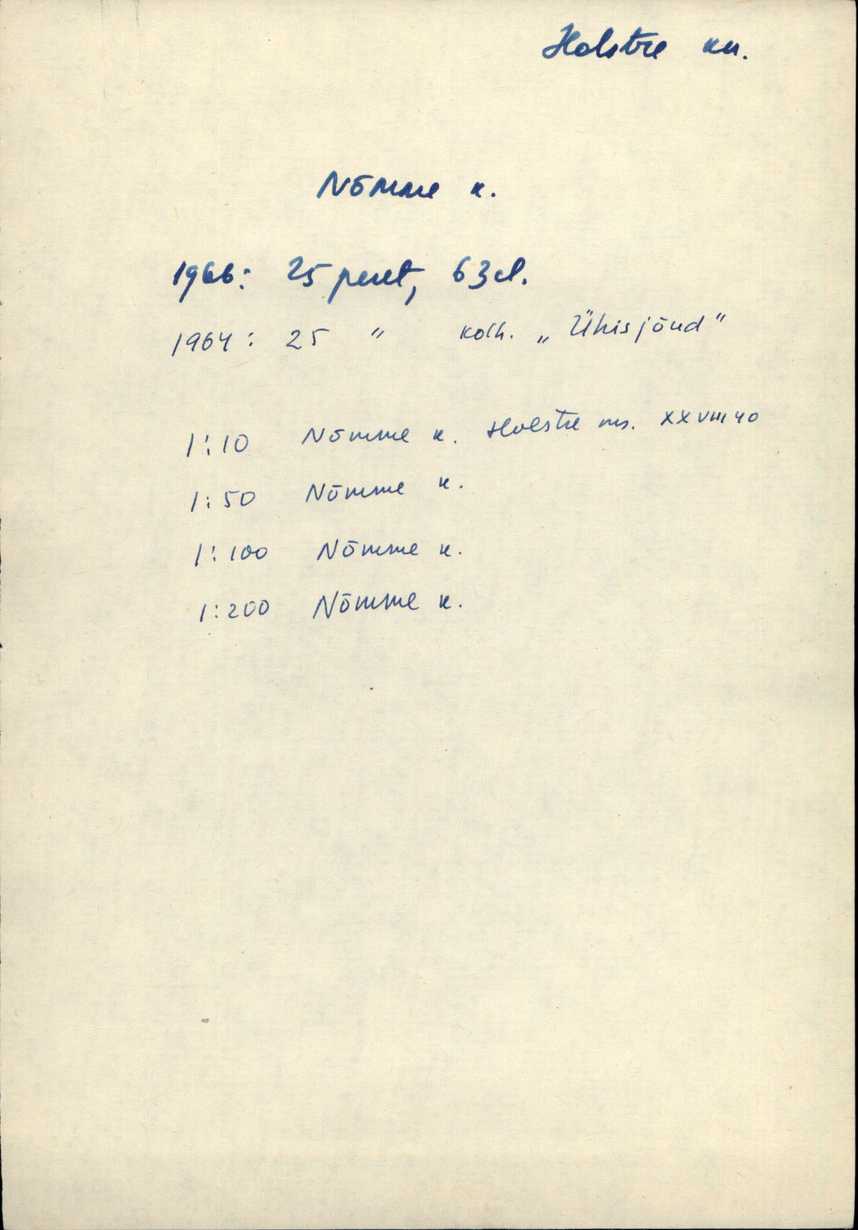 Holstre kn.
Nõmme k.
1966: 25 peret, 63 el.
1964: 25 " kolh. „Ühisjõud"
1:10 Nõmme k. Holstre ms. XXVIII 40
1:50 Nõmme k.
1:100 Nõmme k.
1:200 Nõmme k.